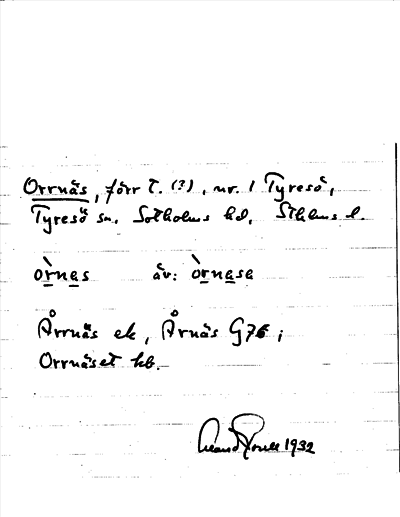 Orrnäs, förr t. (?), nr. 1 Tyresö,
Tyresö sn. Sotholms hd. Sthlms l.
òrnas äv: òrnase
Årrnäs ek, Årnäs G76;
Orrnäset kb.
1932